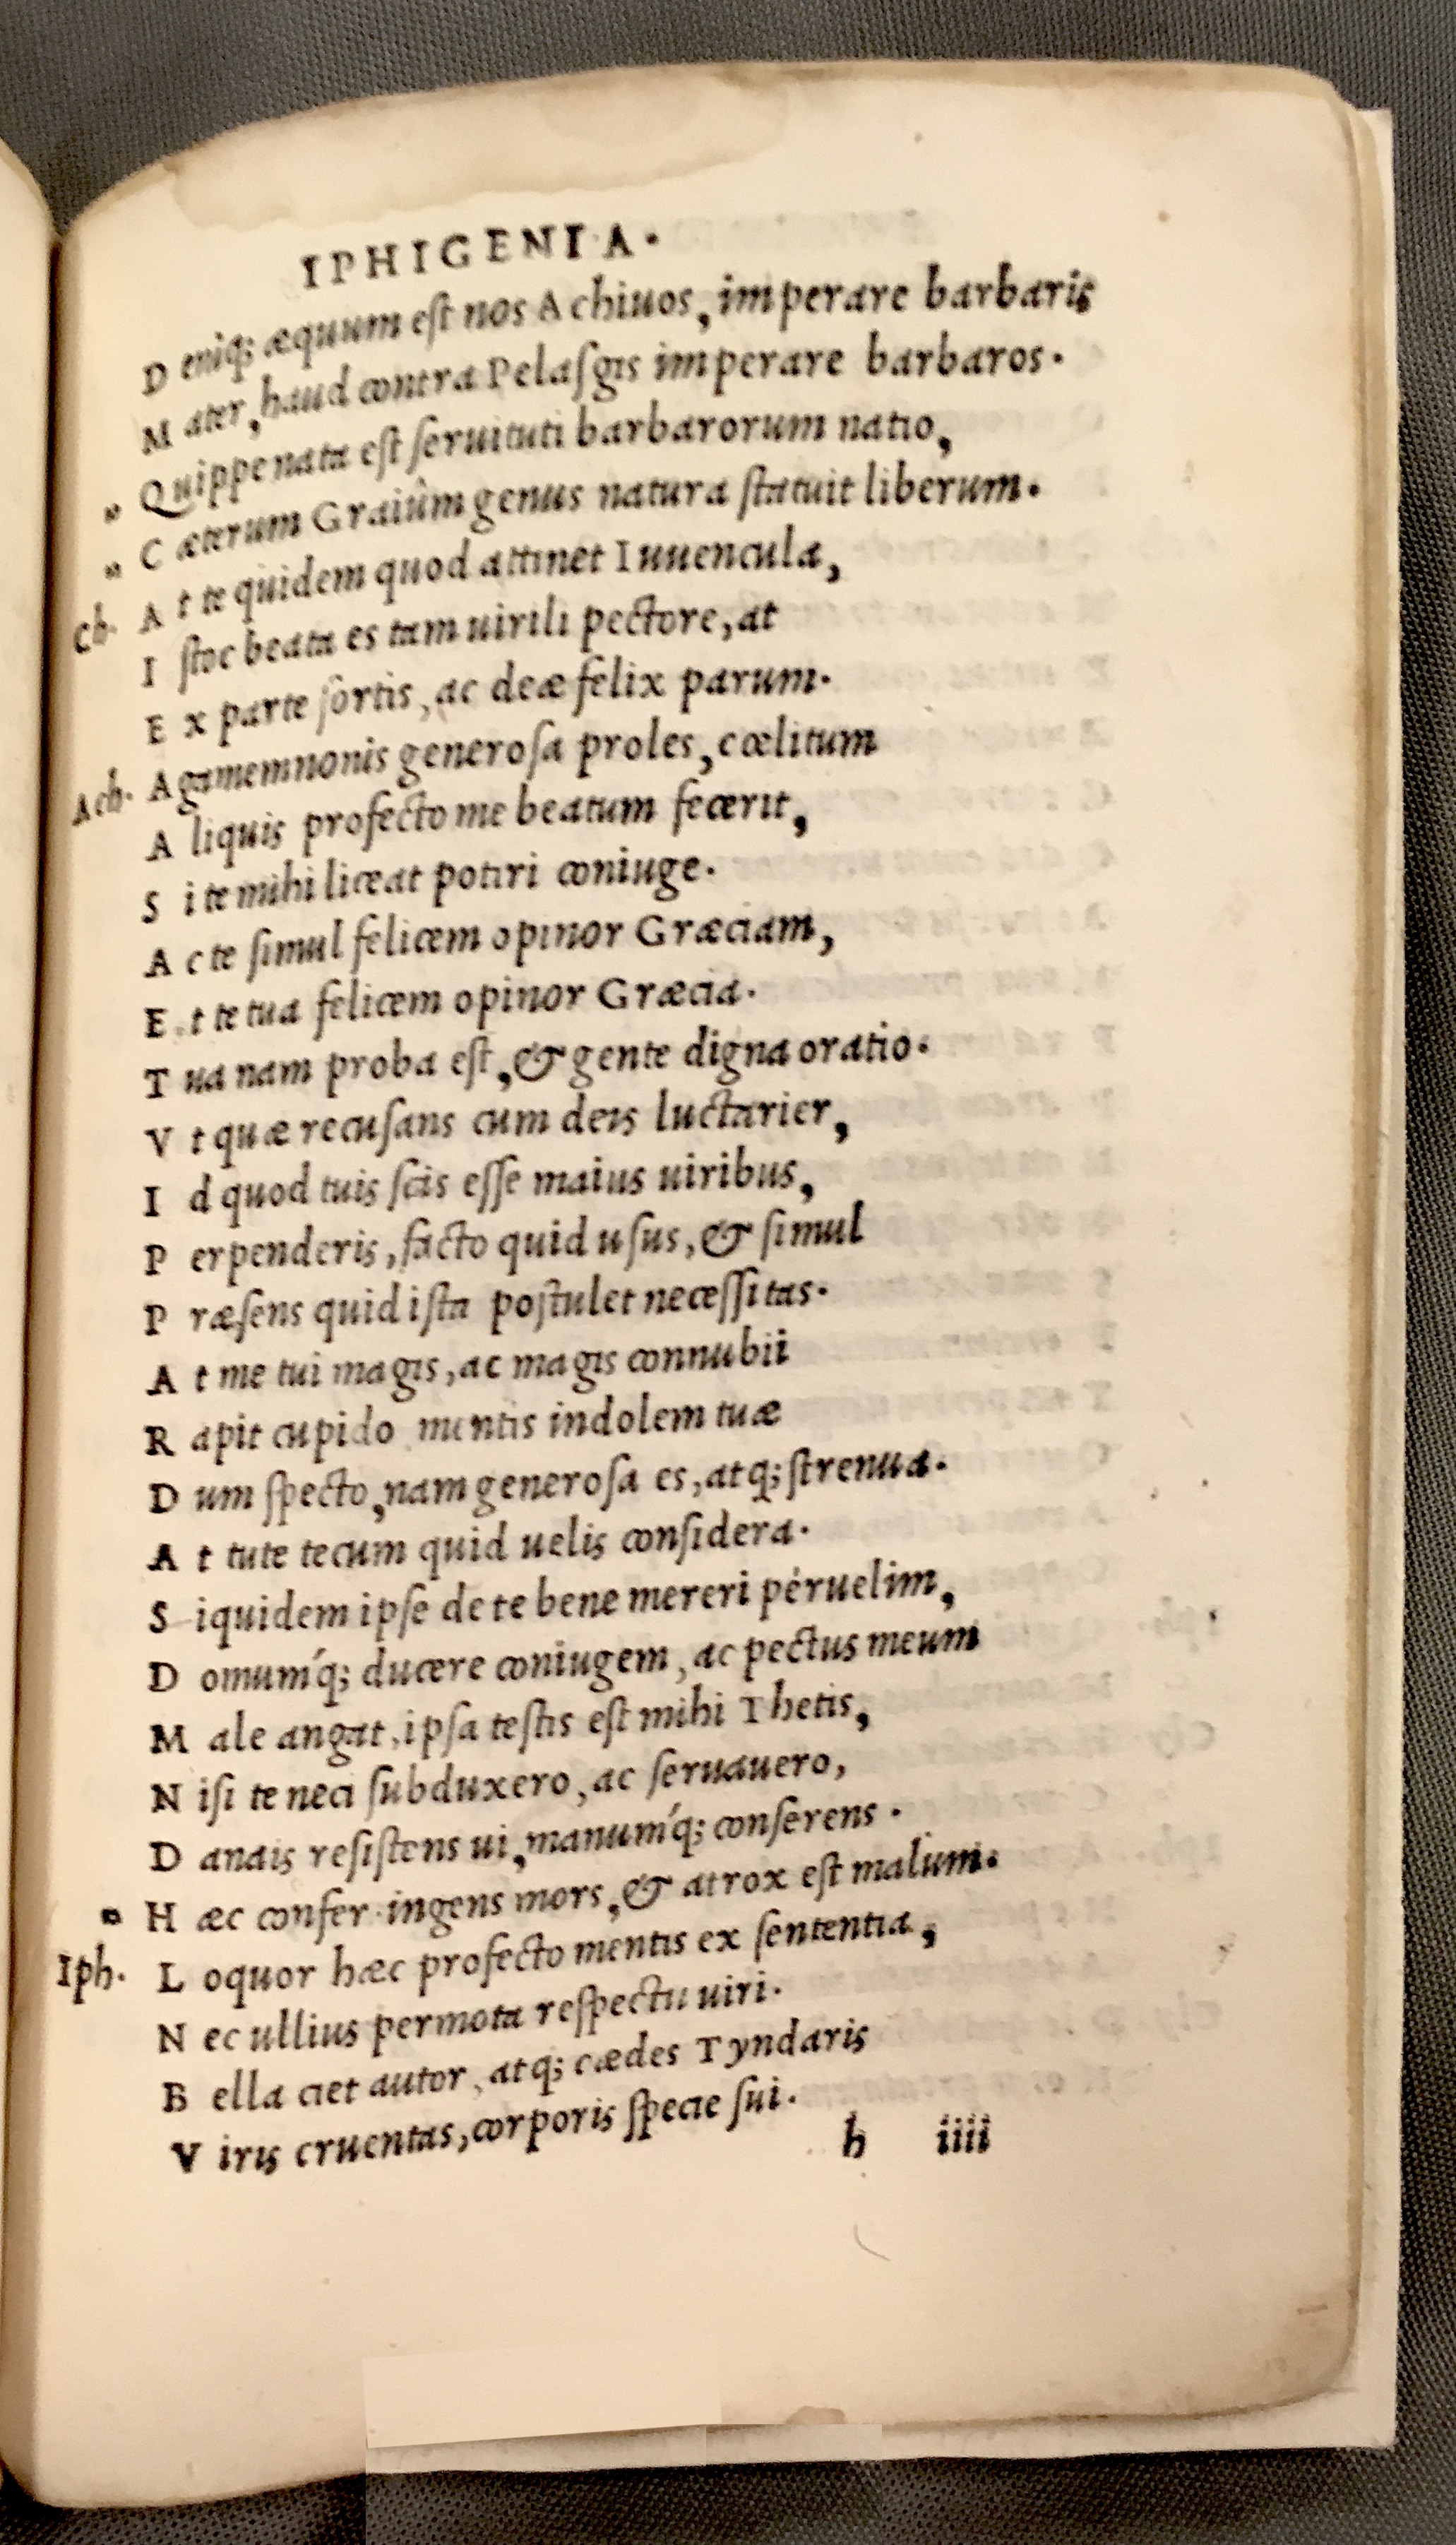 IPHIGENIA.
D eniq; æquum eſt nos Achiuos, imperare barbaris
M ater, haud contra Pelaſgis imperare barbaros.
„ Quippe nata eſt ſeruituti barbarorum natio,
„ C æterum Graiûm genus natura ſtatuit liberum.
Ch. A t te quidem quod attinet Iuuencula,
I ſtoc beata es tam uirili pectore, at
E x parte ſortis, ac deæ felix parum.
Ach. Agamemnonis generoſa proles, cœlitum
A liquis profecto me beatum fecerit,
S i te mihi liceat potiri coniuge.
A c te ſimul felicem opinor Græciam,
E t te tua felicem opinor Græcia.
T ua nam proba eſt, & gente digna oratio.
V t quæ recuſans cum deis luctarier,
I d quod tuis ſcis eſſe maius uiribus,
P erpenderis, facto quid uſus, & ſimul
P ræſens quid iſta poſtulet neceſſitas.
A t me tui magis, ac magis connubii
R apit cupido mentis indolem tuæ
D um ſpecto, nam generoſa es, atq; ſtrenua.
A t tute tecum quid uelis conſidera.
S iquidem ipſe de te bene mereri péruelim,
D omumq́; ducere coniugem, ac pectus meum
M ale angat, ipſa teſtis eſt mihi Thetis,
N iſi te neci ſubduxero, ac ſeruauero,
D anais reſiſtens ui, manumq́; conſerens.
„ H æc confer ingens mors, & atrox eſt malum.
Iph. L oquor hæc profecto mentis ex ſententia,
N ec ullius permota reſpectu uiri.
B ella ciet autor, atq; cædes Tyndaris
V iris cruentas, corporis ſpecie ſui.
h iiii